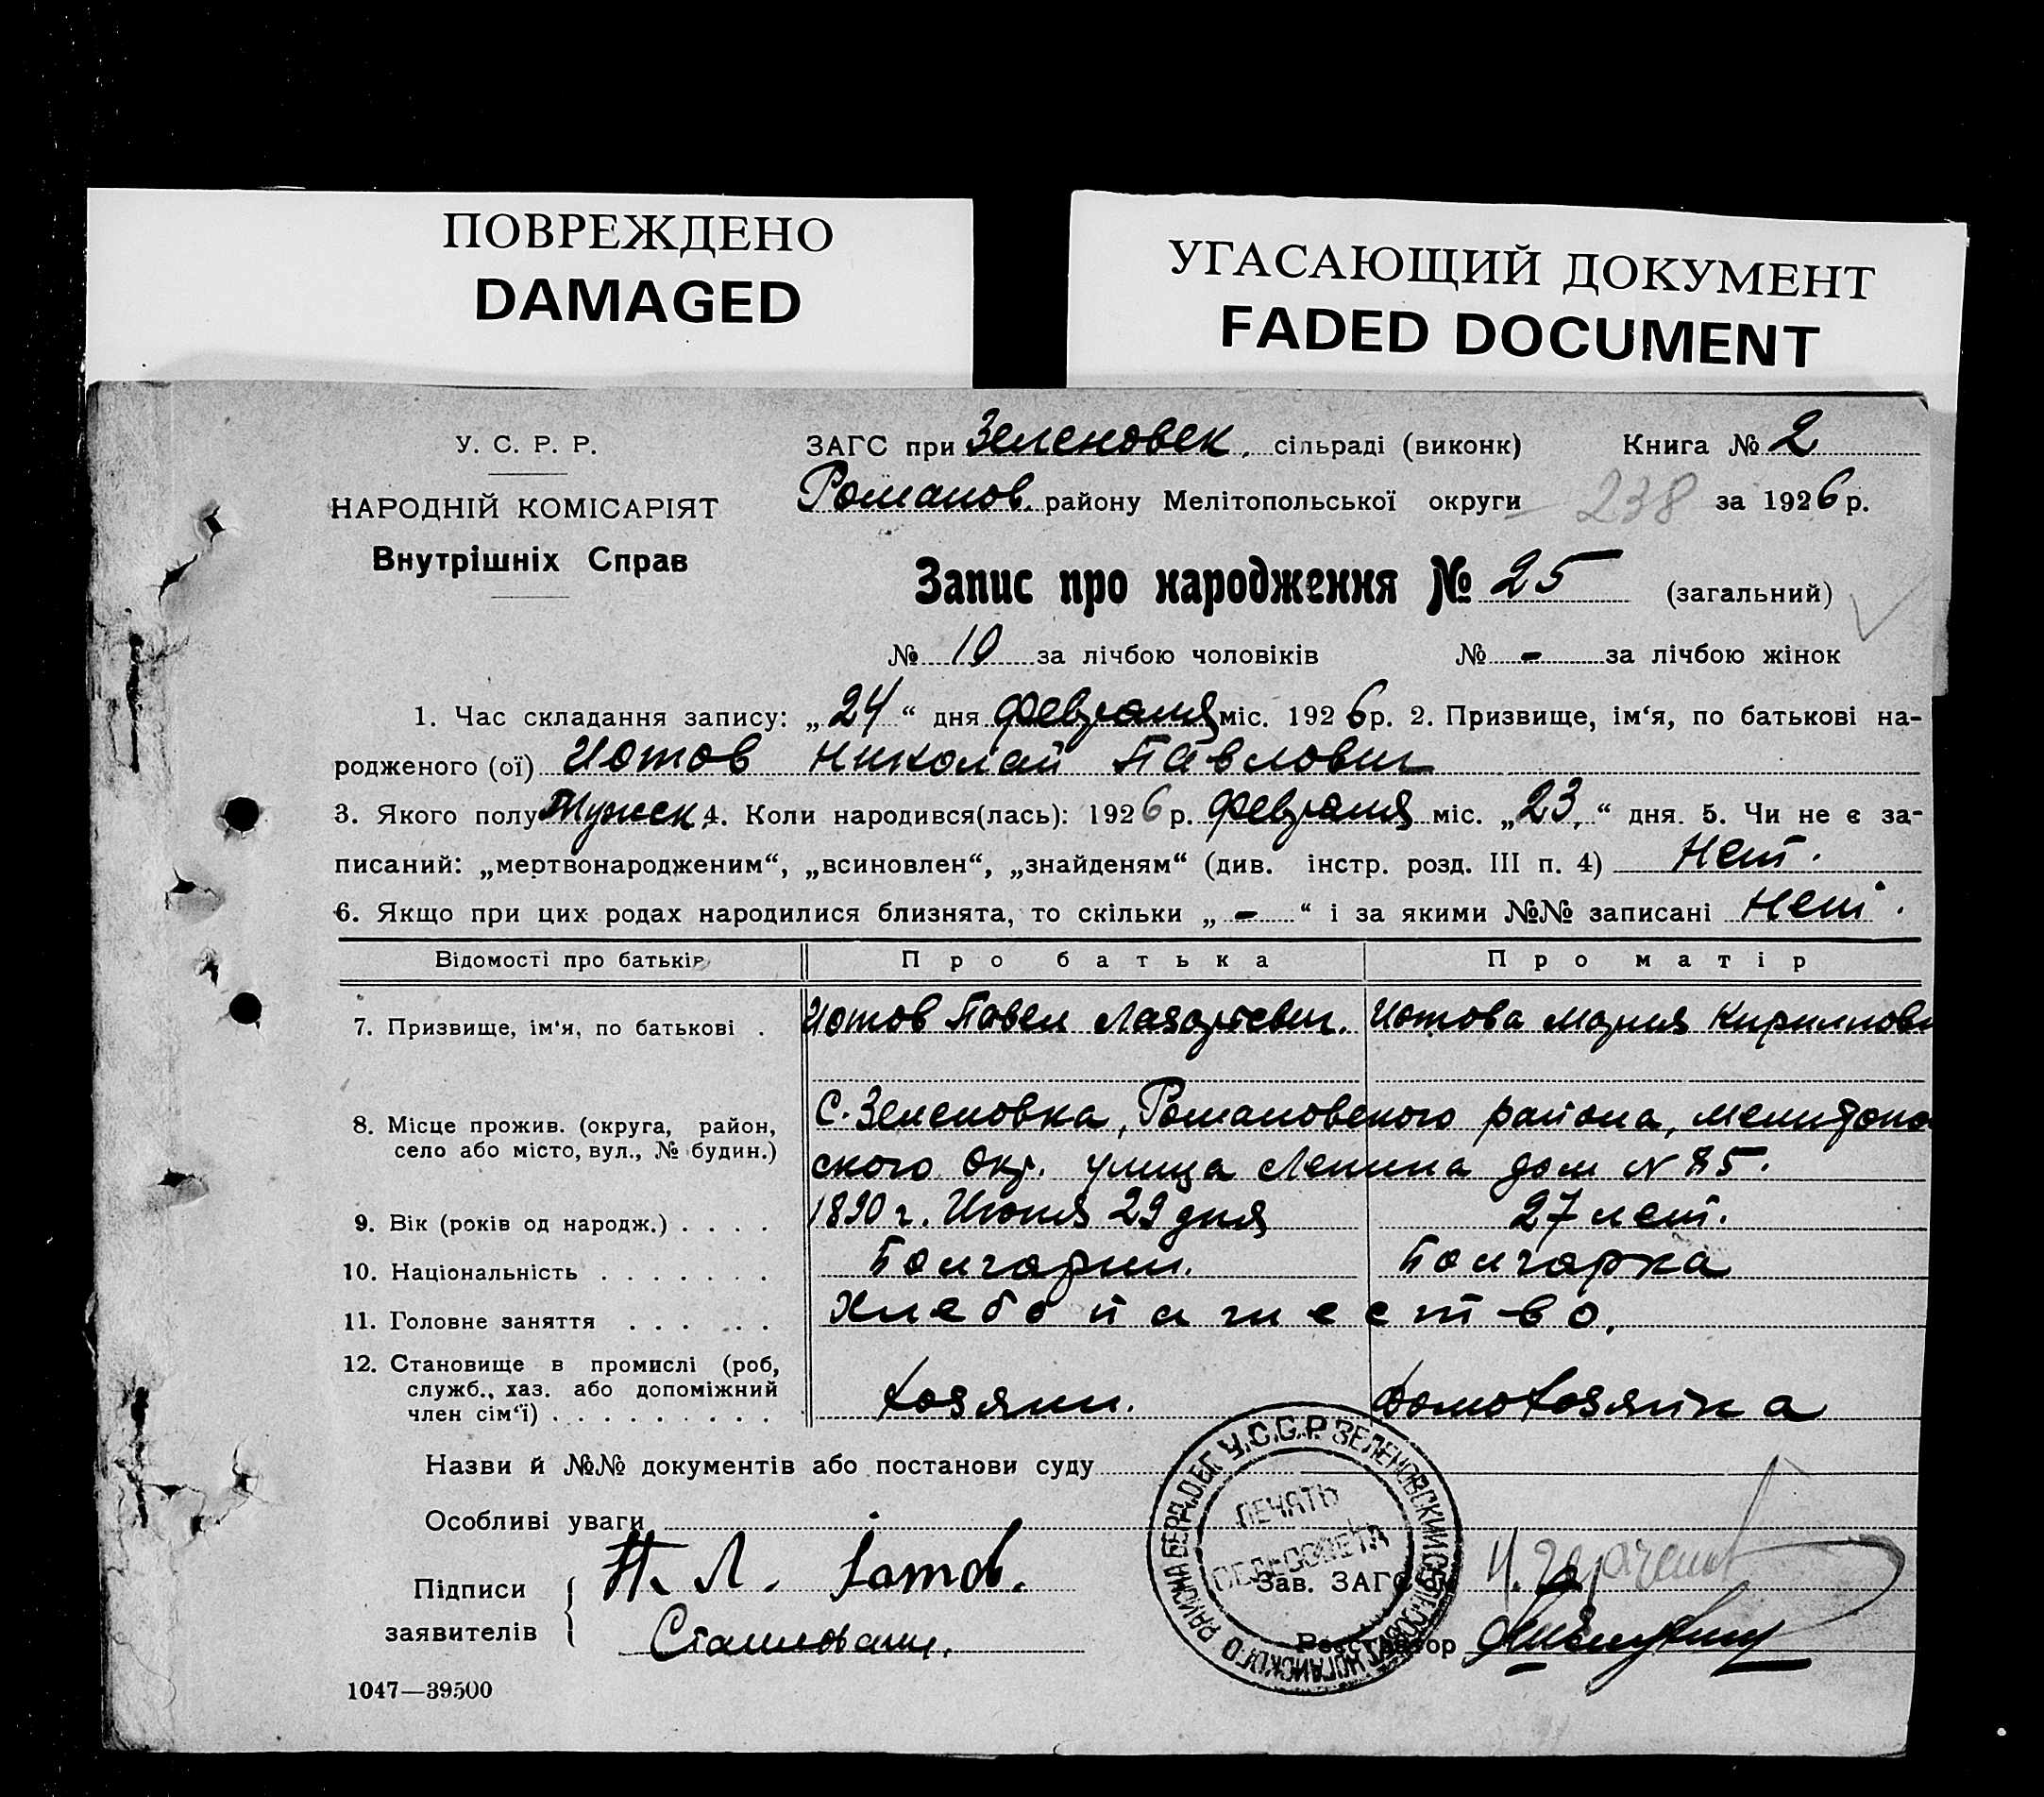 ПОВРЕЖДЕНО
DAMAGED
УГАСАЮЩИЙ ДОКУМЕНТ
FADED DOCUMENT
У. С. Р. Р.
НАРОДНІЙ КОМІСАРІЯТ
Внутрішніх Справ
ЗАГС при Зеленовск. сільраді (виконк) Книга № 2
Романов. району Мелітопольської округи 238 за 1926 р.
Запис про народження № 25 (загальний)
№ 10 за лічбою чоловіків № - за лічбою жінок
1. Час складання запису: „24“ дня февраля міс. 1926 р. 2. Призвище, ім‘я, по батькові на-
родженого (ої) Иотов Николай Павлович
3. Якого полу Мужск. 4. Коли народився(лась): 1926 р. февраля міс. „23.“ дня. 5. Чи не є за-
писаний: „мертвонародженим“, „всиновлен“, „знайденям“ (див. інстр. розд. III п. 4) Нет.
6. Якщо при цих родах народилися близнята, то скільки „-“ і за якими №№ записані Нет.
Відомості про батьків Про батька Про матір
7. Призвище, ім‘я, по батькові . Иотов Павел Лазарьевич. Иотова Мария Кириловн
8. Місце прожив. (округа, район, село або місто, вул., № будин.) С. Зеленовка, Романовского района, Мелитопо
ского Окр. улица Ленина дом № 85.
9. Вік (років од народж.) . . . . 1890 г. Июня 29 дня 27 лет.
10. Національність . . . . . . . Болгарин. Болгарка
11. Головне заняття . . . . . . Хлебопашество.
12. Становище в промислі (роб,
служб., хаз. або допоміжний
член сім‘ї) . . . . . . . . . Хозяин. Домохозяйка
Назви й №№ документів або постанови суду
Особливі уваги
Підписи
заявителів
П. Л. Іотов.
Зав. ЗАГС‘ом
Реєстратор
У.С.С.Р. ЗЕЛЕНОВСКИЙ СЕЛЬСОВЕТ НОГАЙСКОГО РАЙОНА БЕРД. ОБГ
ПЕЧАТЬ
СЕЛЬСОВЕТА
1047—39500